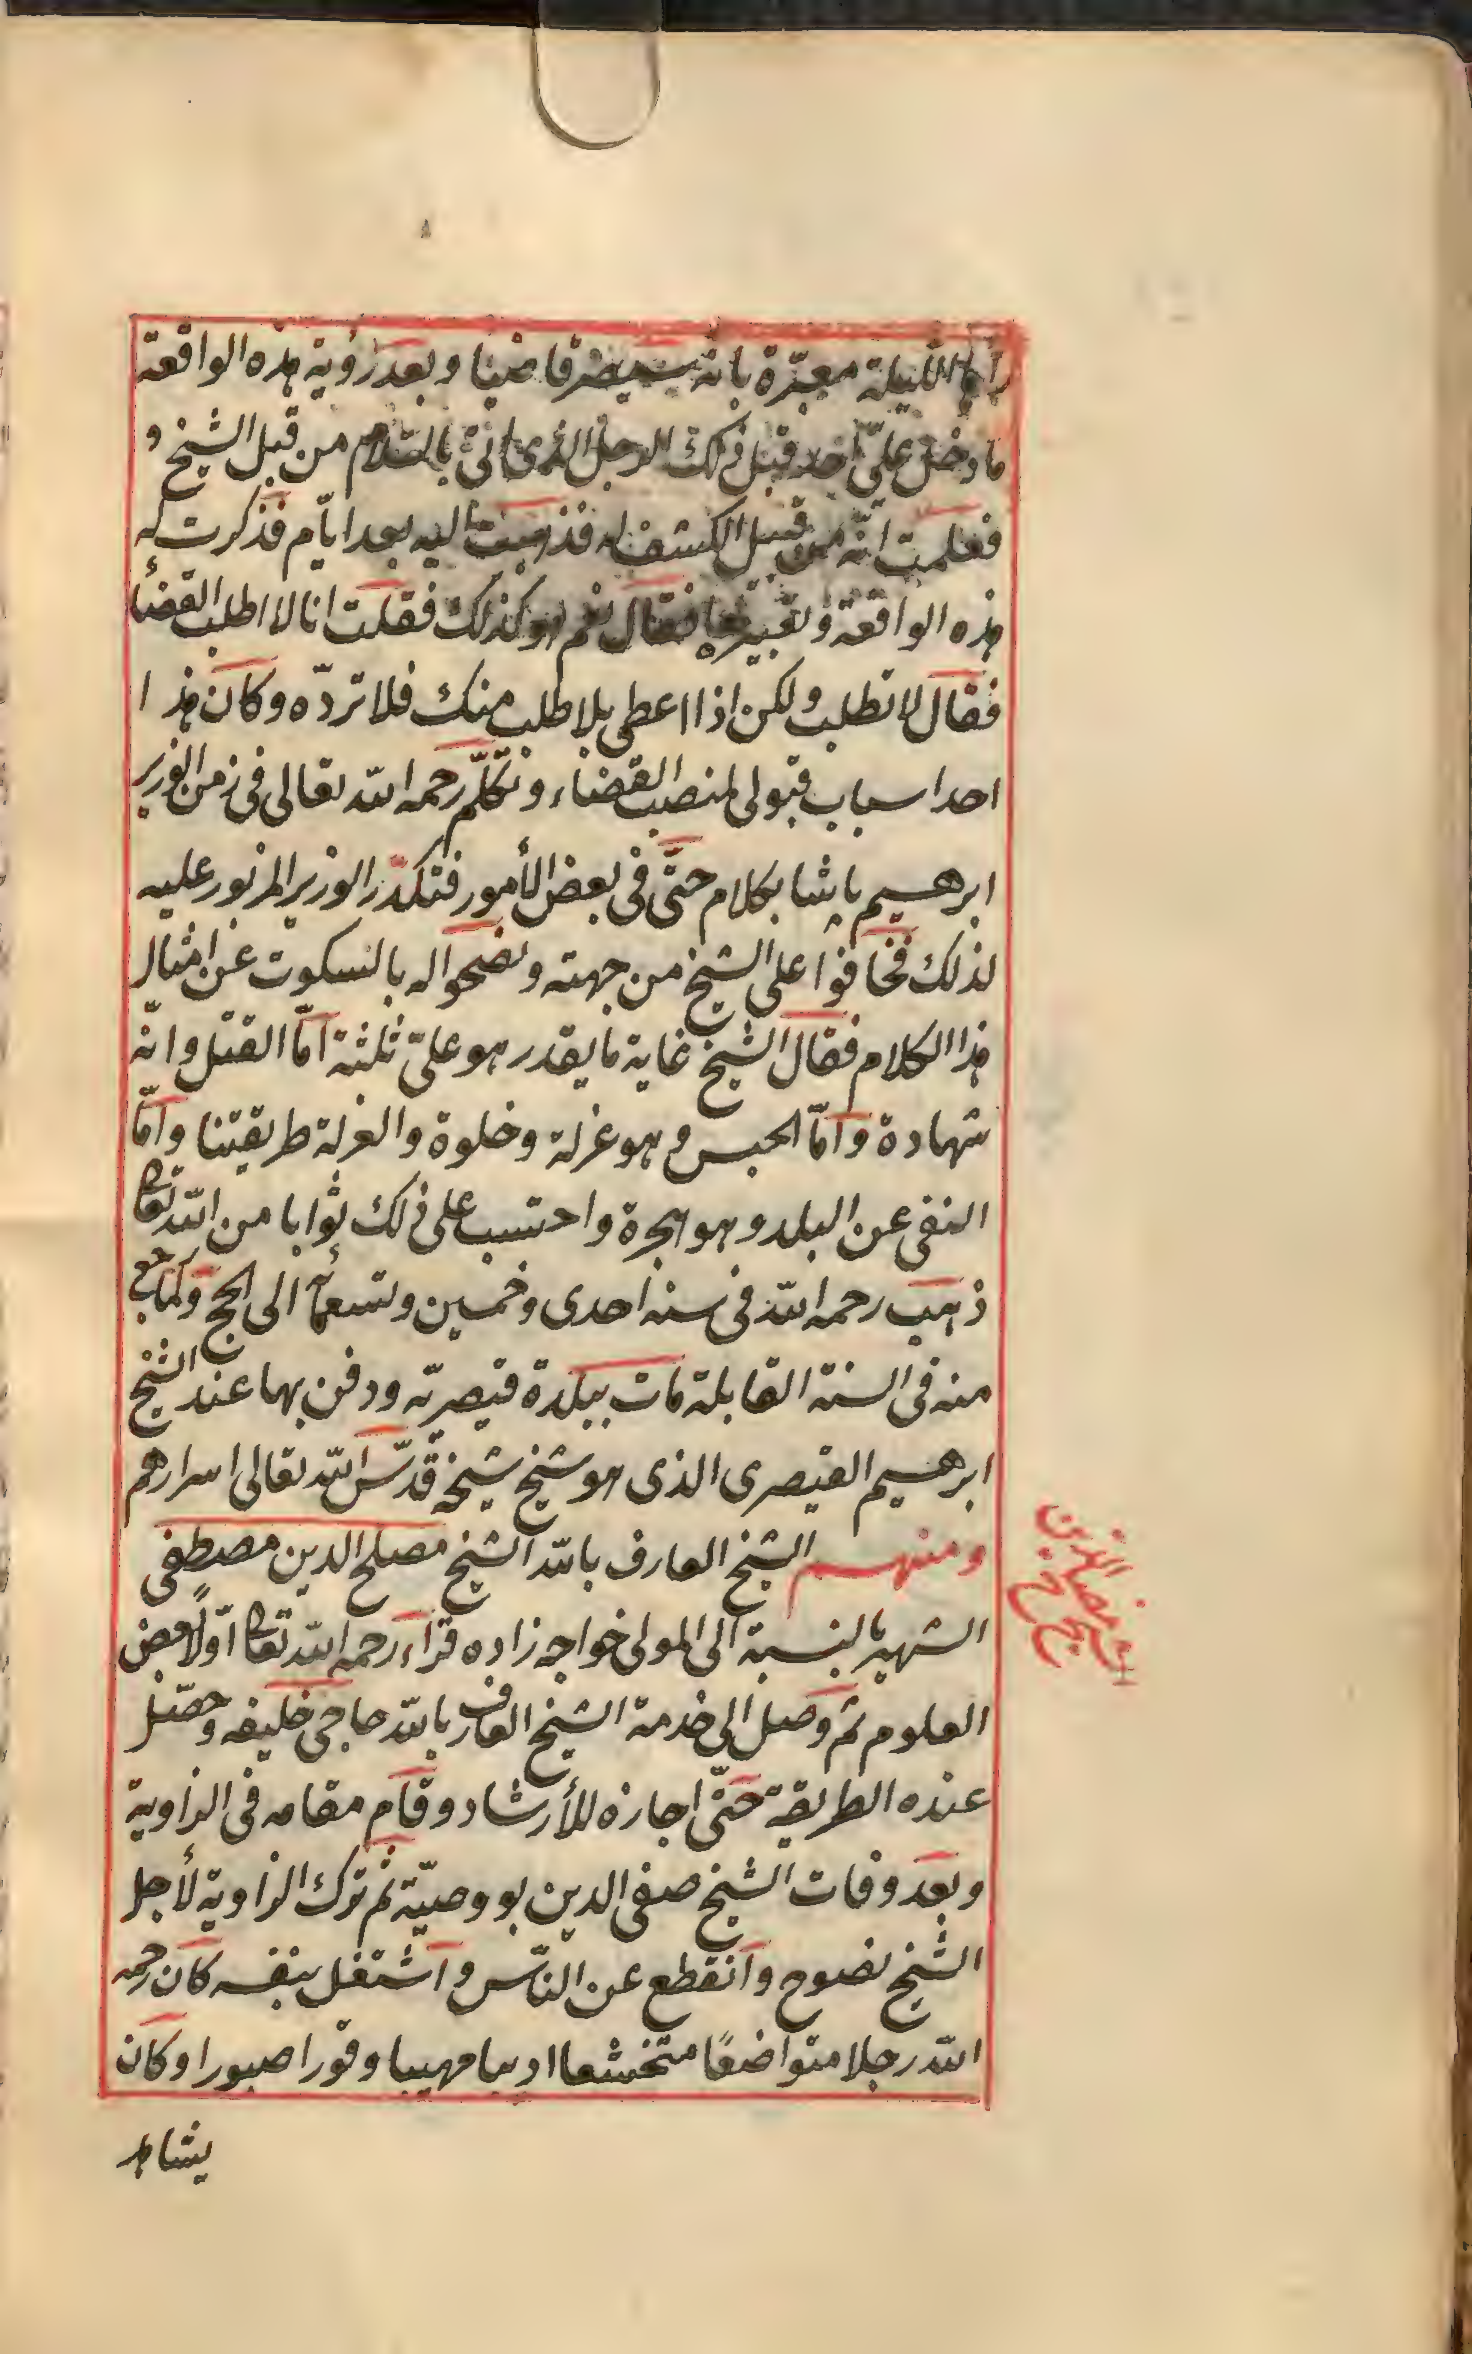 الليلة معبّرة بانه سيصير قاضيا وبعد رؤية هذه الواقعة
ما دخل علىّ احد قبل ذلك الرجل الذى اتى بالسلام من قبل الشيخ و
فعلمت انّه من قبيل الكشف له فذهبت اليه بعد ايّام فذكرت له
هذه الواقعة وتعبيرها فقال نعم هو كذلك فقلت انا لا اطلب القضأ
فقال لا تطلب ولكن اذا اعطى بلا طلب منك فلا تردّه وكان هذا
احد اسباب قبولى لمنصب القضاء وتكلّم رحمه الله تعالى فى زمن الوزير
ابرهيم پاشا بكلام حتّى فى بعض الأمور فتكدّر الوزير المزبور عليه
لذلك فخافوا على الشيخ من جهته ونصحوا له بالسكوت عن امثال
هذا الكلام فقال الشيخ غاية ما يقدر هو علىّ ثلثة امّا القتل وانّه
شهادة وامّا الحبس وهو عزلة وخلوة والعزلة طريقتنا وامّا
النفى عن البلد وهو هجرة واحتسب على ذلك ثوابا من الله تعا
ذهب رحمه الله فى سنه احدى وخمسين وتسعمأئة الى الحج ولما رجع
منه فى السنة القابلة مات ببلدة قيصريّه ودفن بها عند الشيخ
ابرهيم القيصرى الذى هو شيخ شيخه قدّس الله تعالى اسرارهم
ومنهم الشيخ العارف بالله الشيخ مصلح الدين مصطفى
الشهير بالنسبة الى المولى خواجه زاده قراء رحمه الله تعا اوّلاً بعض
العلوم ثم وصل الى خدمة الشيخ العارف بالله حاجى خليفه وحصّل
عنده الطريقة حتّى اجازه للأرشاد وقام مقامه فى الزاوية
وبعد وفات الشيخ صفى الدين بو وصيّة ثم ترك الزاوية لأجل
الشيخ نصوح وانقطع عن النّاس واشتغل بنفسه كان رحمه
الله رجلا متواضعًا متخشعا اديبا مهيبا وقورا صبورا وكان
يشاهد